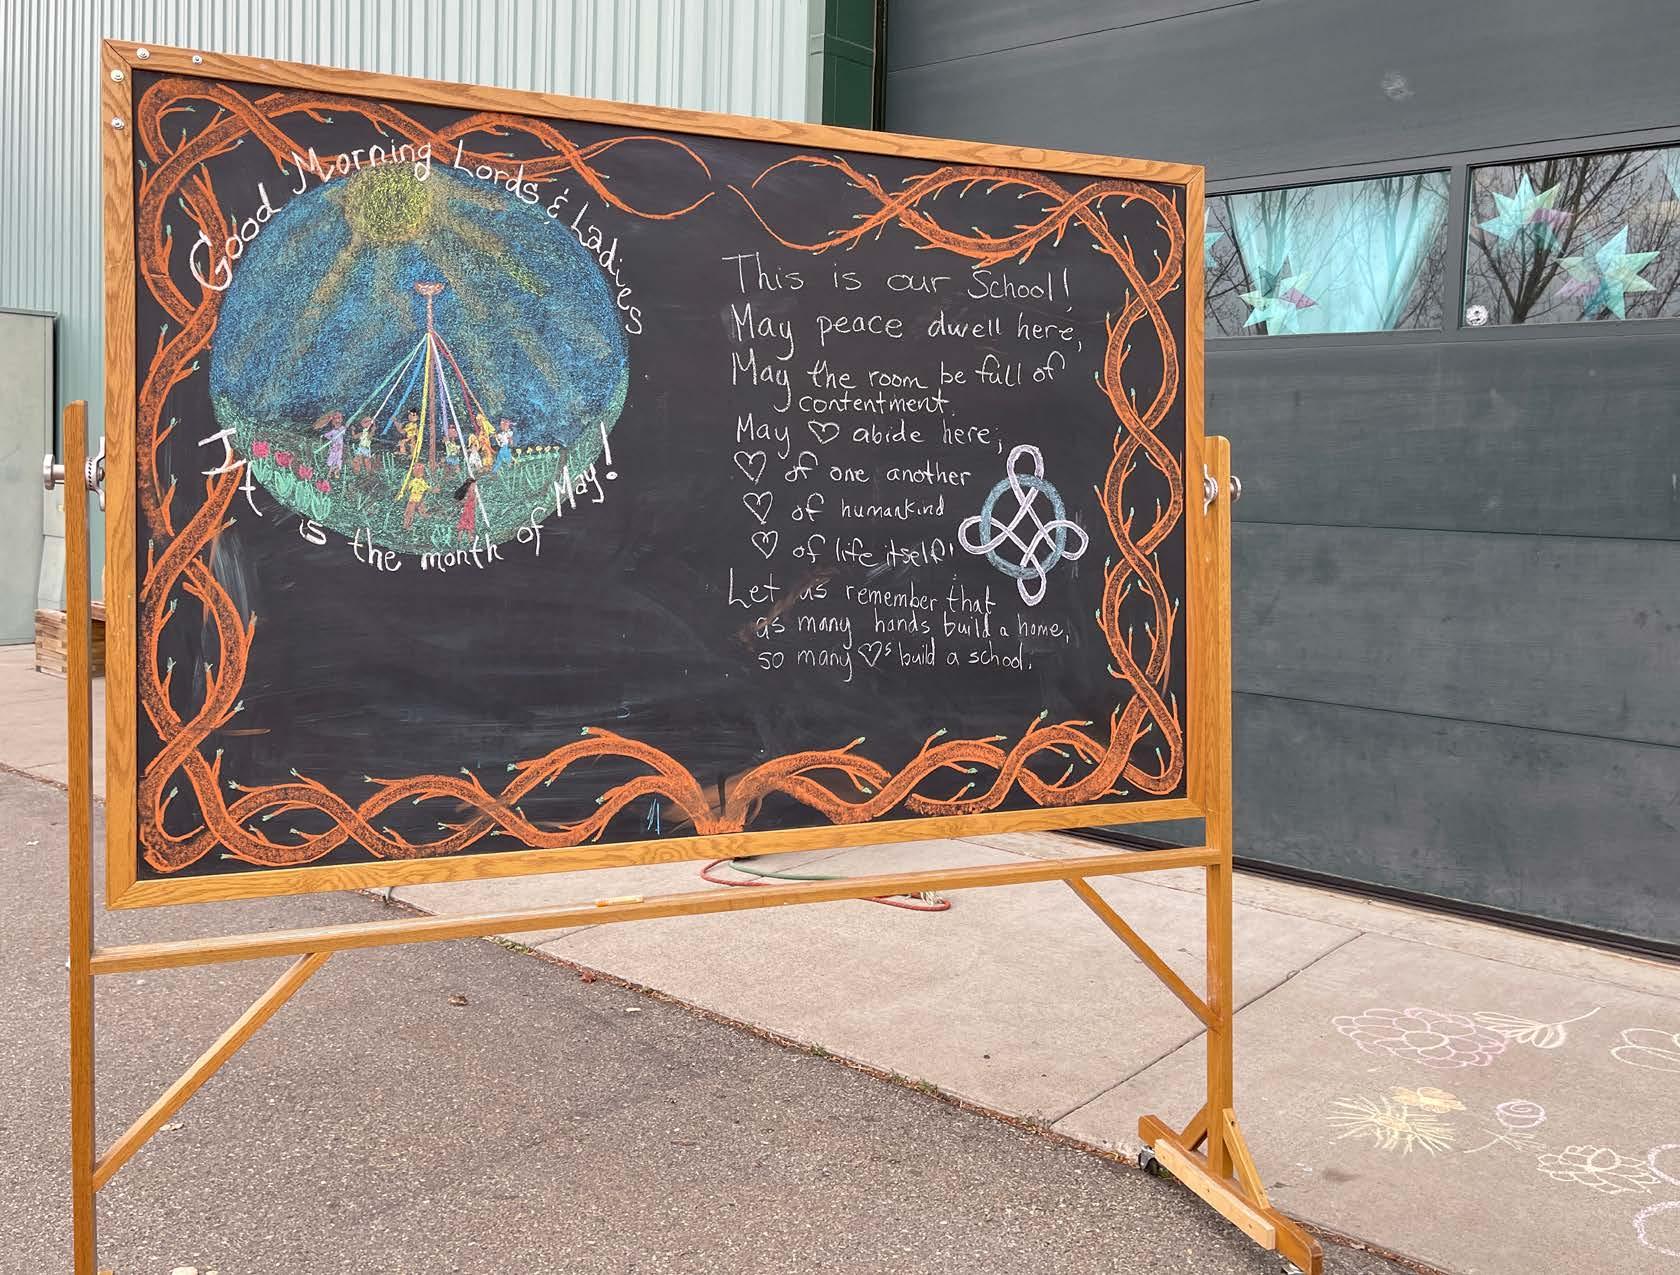 Good Morning Lords & Ladies
It is the month of May!
This is our School!
May peace dwell here,
May the room be full of
contentment.
May ♡ abide here;
♡ of one another
♡ of humankind
♡ of life itself!
Let us remember that
as many hands build a home,
so many ♡s build a school.